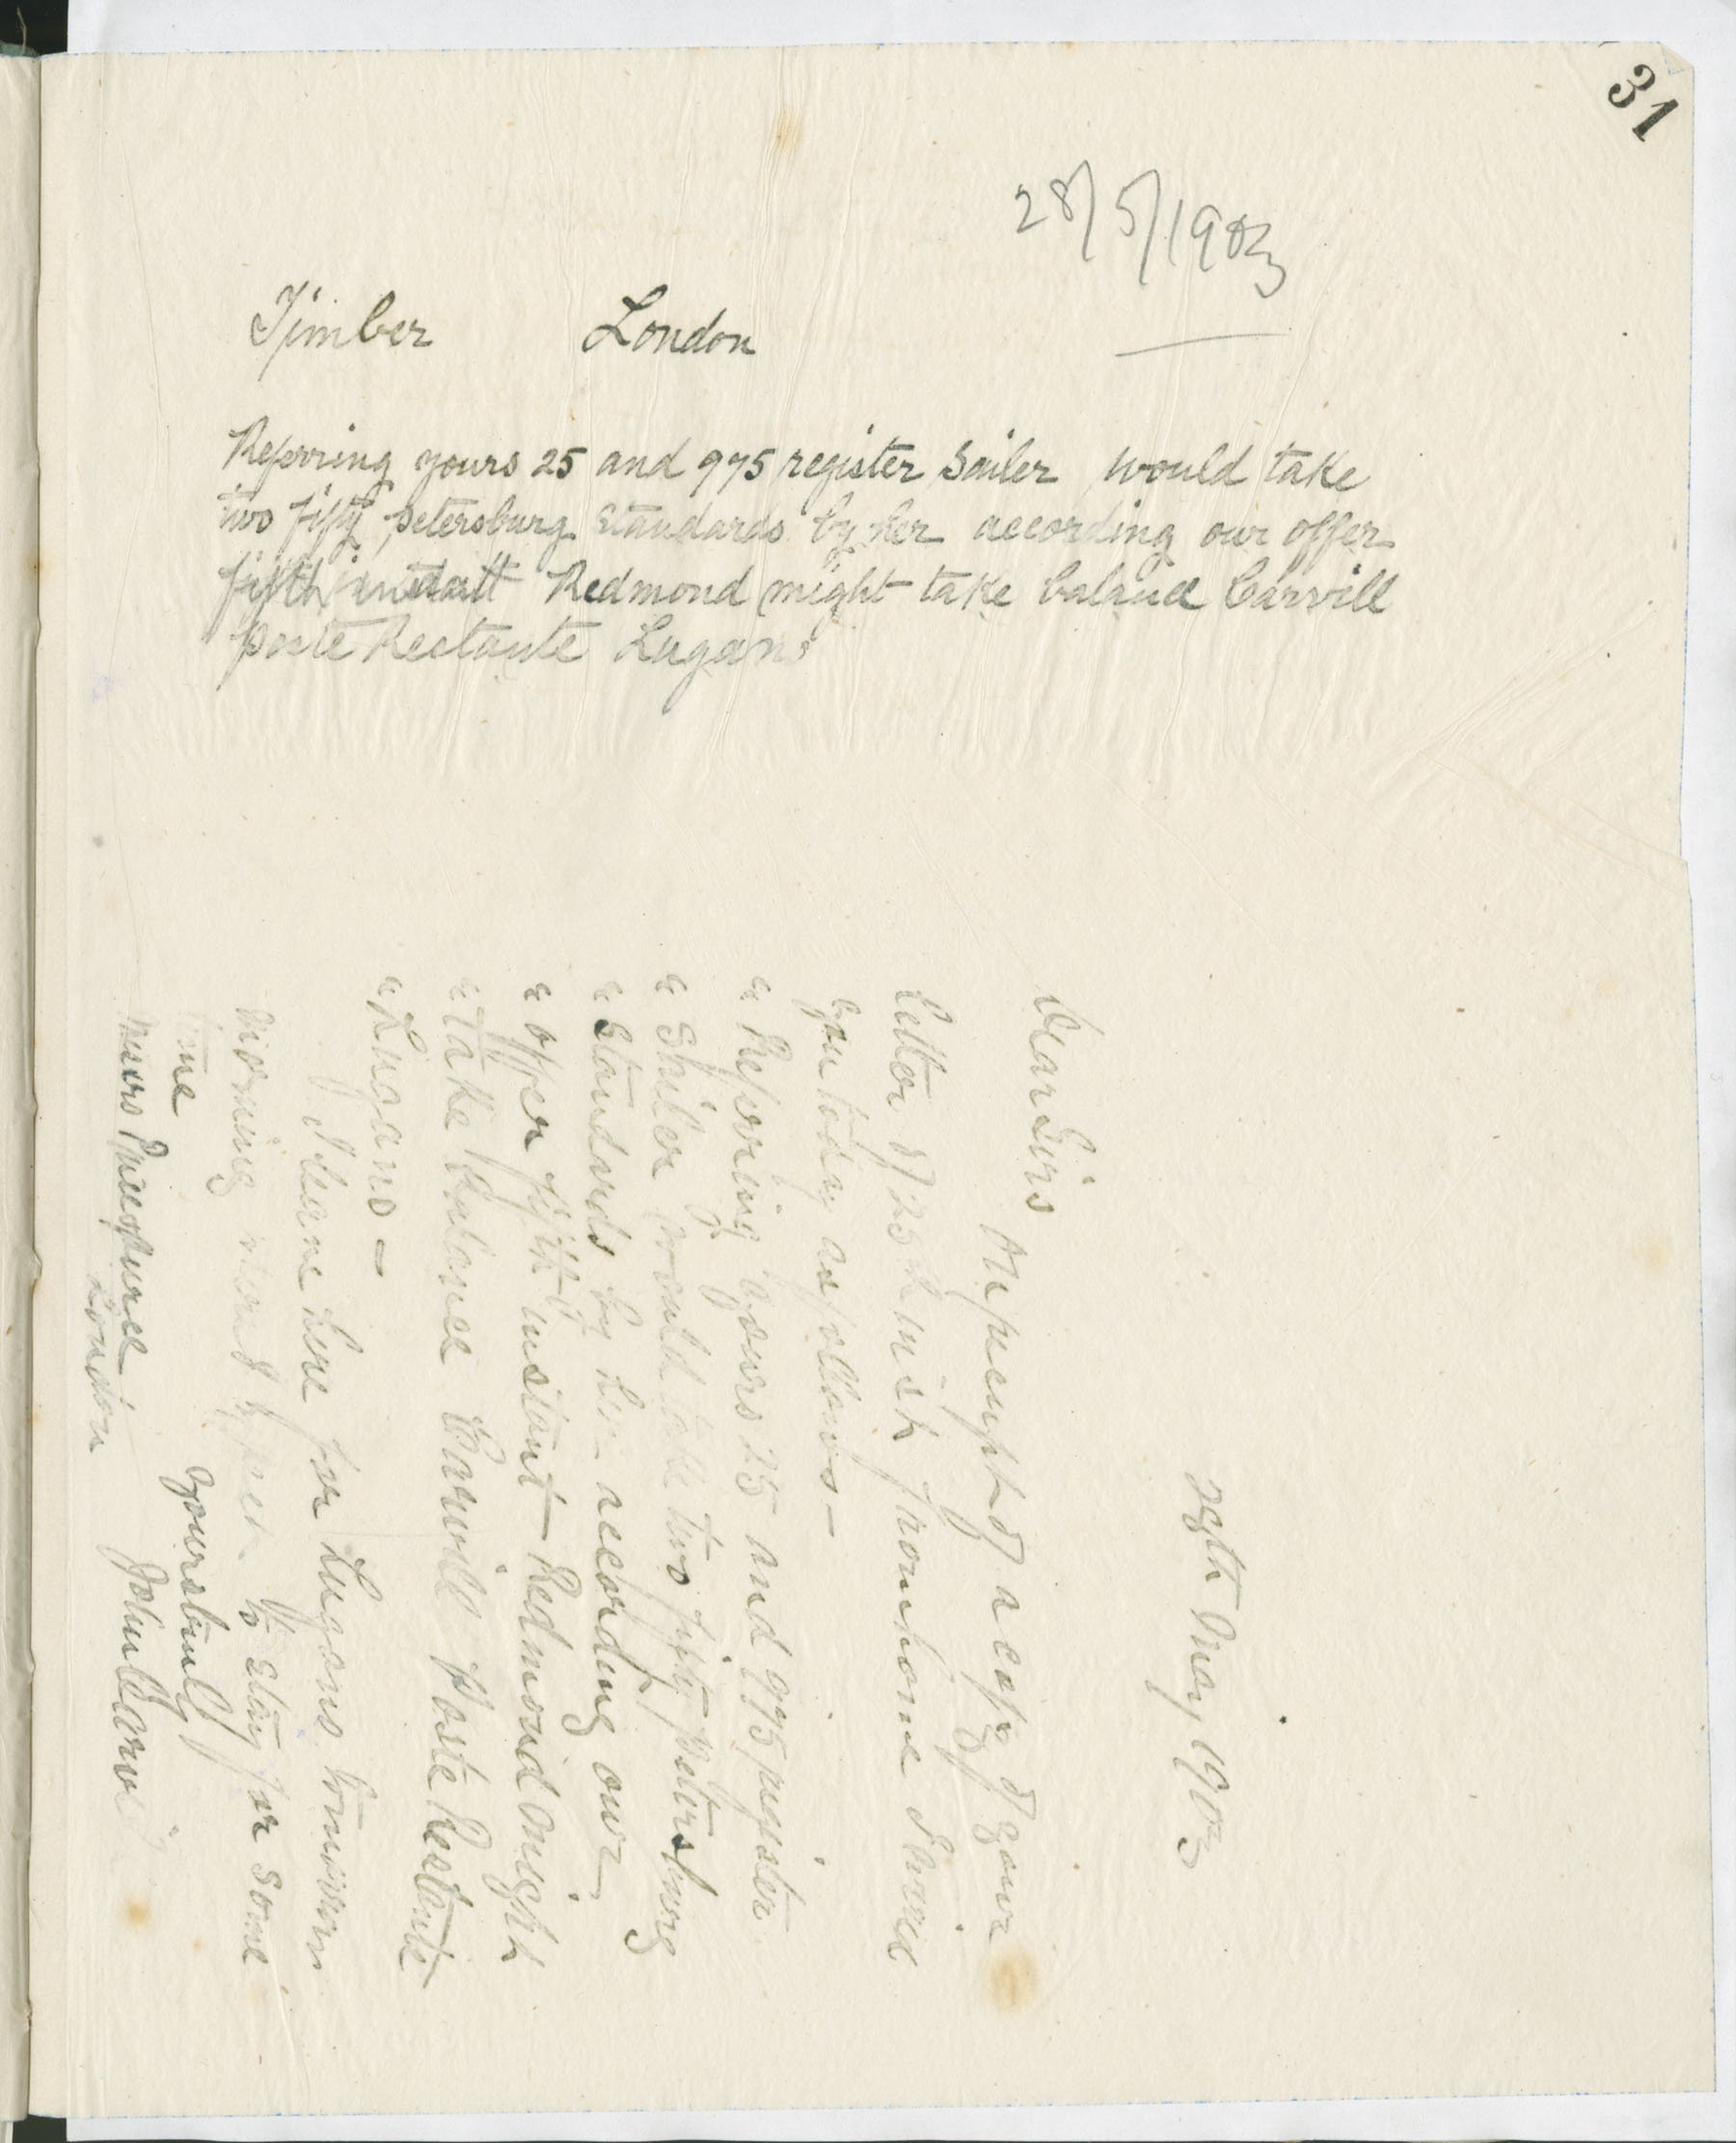 31
28/5/1903
Timber London
Referring yours 25 and 975 register Sailer would take
two fifty petersburg Standards by her according our offer
fifth instant Redmond might take balance Carvill
poste Restante Lugano
28th May 1903
Dear Sirs
On receipt of a copy of your
letter of 25th inst from home I wired
you today as follows –
" Referring yours 25 and 975 register
" Sailer would take two fifty petersburg
" Standards by her according our
" offer fifth instant – Redmond might
" take balance Carvill Poste Restante
" Lugano –
I leave here for Lugano tomorrow
morning and expect to stay for some
time
Yours truly
Messrs Price & Pierce John Carvill
London